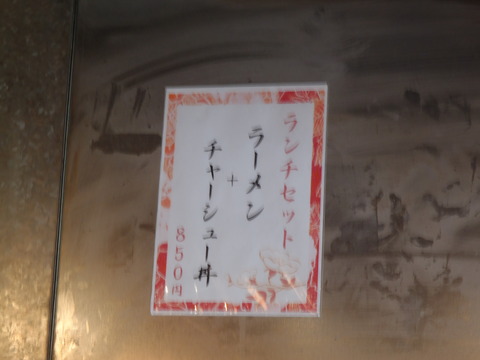 ランチセット
ラーメン
+
チャーシュー丼
850円